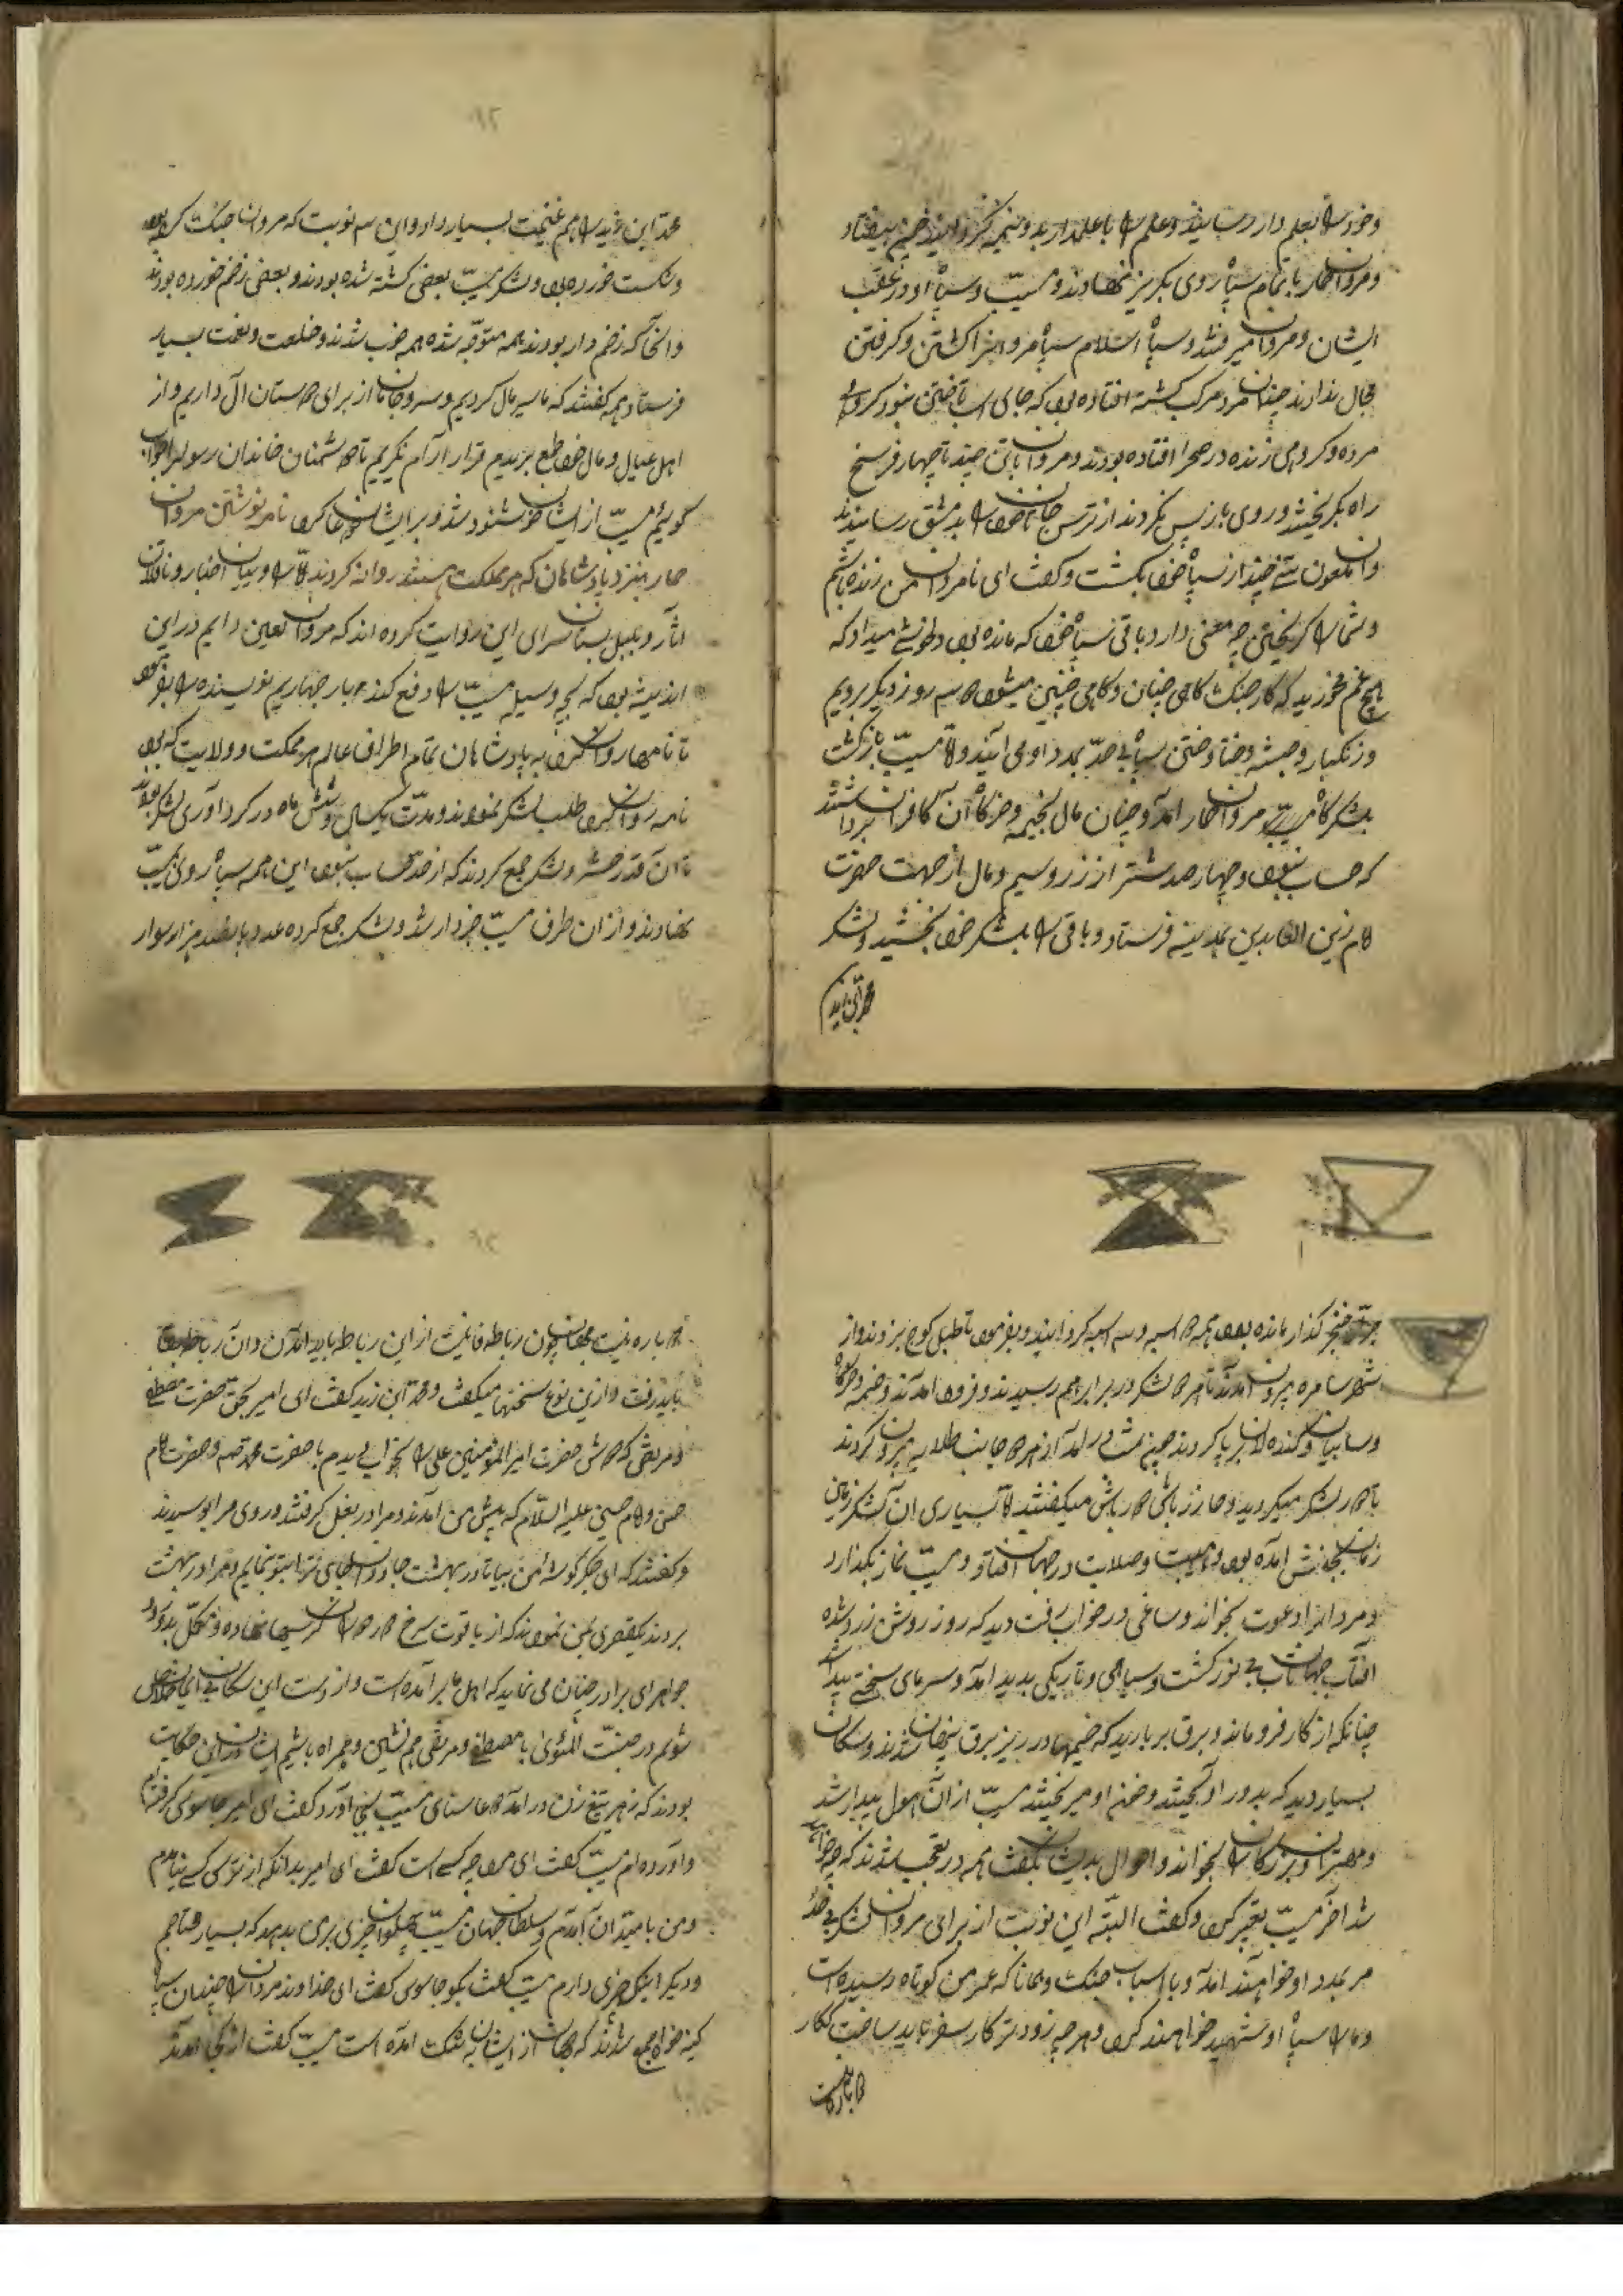 وخود را بعلم دار رسانید وعلم را با علمدار بدو نیمه کرد
ومروان حمار با تمام سپاه روی بگریز نهادند ومسیّب وسپاه او در عقب
ایشان ومروان میرفتند وسپاه اسلام سپاه مروان را کشتن وگرفتن
مجال ندادند چندان مرد ومرکب کشته افتاده بود که جای اسب تاختن نبود گروهی
مرده وگروهی زنده در صحرا افتاده بودند ومروان با تن چند تا چهار فرسخ
راه بگریختند وروی باز پس نکردند از ترس جان خود را بدمشق رسانیدند
وآن ملعون تنی چند از سپاه خود بکشت وگفت ای نامردان من زنده باشم
وشما را گریختن چه معنی دارد باقی سپاه خود که مانده بود دلخوشی میداد که
هیچ غم مخورید که کار جنگ گاهی چنان وگاهی چنین میشود سه روز دیگر بردیم
وزنگبار وحبشه وختا وختن سپاه بی حدّ بمدد او می آیند وامّا مسیّب بازگشت
بلشکرگاه مروان حمار آمد وچندان مال وخیمه وخرگاه آن کافران برداشتند
که حساب نبود وچهار صد شتر از زر وسیم ومال از جهت حضرت
امام زین العابدین بمدینه فرستاد وباقی را بلشکر خود بخشید ولشکر
محمّد ابن زید
محمّد ابن زید را هم غنیمت بسیار داد واین سه نوبت که مروان جنگ کرده بود
وشکست خورده بود ولشکر مسیّب بعضی کشته شده بودند وبعضی زخم خورده بودند
وآنها که زخم دار بودند همه متوجّه شده همه خوب شدند وخلعت ونعمت بسیار
فرستاد همه گفتند که ما سر ومال کردیم وسر وجان از برای دوستان آل داریم واز
اهل عیال ومال خود طمع بریدیم قرار آرام نگیریم تا دشمنان خاندان رسول را جواب
گوئیم مسیّب از ایشان خوشنود شد وبر ایشان دعا کرد نامه نوشتن مروان
حمار بنزد پادشاهان که هر مملکت هستند روانه کردند امّا راویان اخبار وناقلان
آثار وبلبل بستان سرای این روایت کرده اند که مروان لعین دایم در این
اندیشه بود که بچه وسیله مسیّب را دفع کند بار چهاریم نویسنده را بفرمود
تا نامها روان کرد به پادشاهان تمام اطراف عالم هر مملکت وولایت که بود
نامه روان کرد طلب لشکر نمودند ومدّت یکسال وشش ماه در گرد آوری لشکر بود
تا آن قدر حشر ولشکر جمع کردند که از حدّ حساب نبود این همه سپاه روی بمسیّب
نهادند واز آن طرف مسیّب خبردار شد ولشکر جمع کرده عدد پانصد هزار سوار
خنجر گذار مانده بود همه دو اسبه وسه اسبه گردانیدند وبفرمود تا طبل کوچ بزدند واز
شهر سامره بیرون آمدند تا هر دو لشکر در برابر هم رسیدند وفرود آمدند وخیمه وخرگاه
وسایبان برپا کردند چون شب درآمد از هر دو جانب طلایه بیرون کردند
تا دور لشکر میگردید وحارز باش دور باش میگفتند امّا بسیاری آن لشکر زمین
زمان بجنبش آمده بود وهیبت وصلابت در جهان افتاد ومسیّب نماز بگذارد
ومردان را دعوت بخواند وساعتی در خواب رفت دید که روز روشن زرد شده
آفتاب جهان تاب بی نور گشت وسیاهی وتاریکی پدید آمد وسرمای سختی پیدا شد
چنانکه از کار فرو ماند وبرق بر بارید که خیمها در زیر برق پنهان شدند وسگان
بسیار دید که بدور او آویختند وخون او میریختند مسیّب از آن هول بیدار شد
ومهتران وبزرگان را بخواند واحوال بدیشان بگفت همه در تعجّب شدند که چه خواهد
شد آخر مسیّب تعبیر کرد وگفت البتّه این نوبت از برای مروان لشکر بی حد
مر بمدد او خواهند آمد وبا اسباب جنگ وهمانا که عمر من کوتاه رسیده است
وما را سپاه او شهید خواهند کرد وهرچه زودتر کار سفر باید ساخت که کار
دوباره نیست
دوباره نیست جهان چون رباطه فانیست از این رباط باید آمدن وآن رباط
باید رفت واز این نوع سخنها میگفت ومحمّد ابن زید گفت ای امیر بحق حضرت مصطفی
ومرتضی که دوش حضرت امیر المؤمنین علی را بخواب دیدم با حضرت محمّد وحضرت امام
حسن وامام حسین علیه السّلام که پیش من آمدند ومرا در بغل گرفتند وروی مرا بوسیدند
وگفتند که ای جگر گوشهٔ من بیا تا در بهشت جاودان جای ترا بتو نمایم ومرا در بهشت
بردند یک قصری بمن نمودند که از یاقوت سرخ نهاده ومکلّل بدر و
جواهر ای برادر چنان می نماید که اجل ما برآمده است واز دست این سگان بی ایمان خلاص
شویم در جنّت المأوی با مصطفی ومرتضی هم نشین وهمراه باشیم ایشان در این حکایت
بودند که زهیر تیغ زن درآمد دعا وثنای مسیّب بجای آورد وگفت ای امیر جاسوسی گرفته ام
وآورده ام مسیّب گفت ای مرد چه کسی است گفت ای امیر بدانکه از ترس کسی نیامدم
ومن بامید آن آمدم سلطان جهان مسیّب پهلوان چیزی بمن بدهد که بسیار محتاجم
ودیگر اینک خبری دارم مسیّب گفت بگو جاسوس گفت ای خداوند مروان را چندان سپاه
کینه خواه جمع شدند که جهان از ایشان بتنگ آمده است مسیّب گفت از کجا آمدند